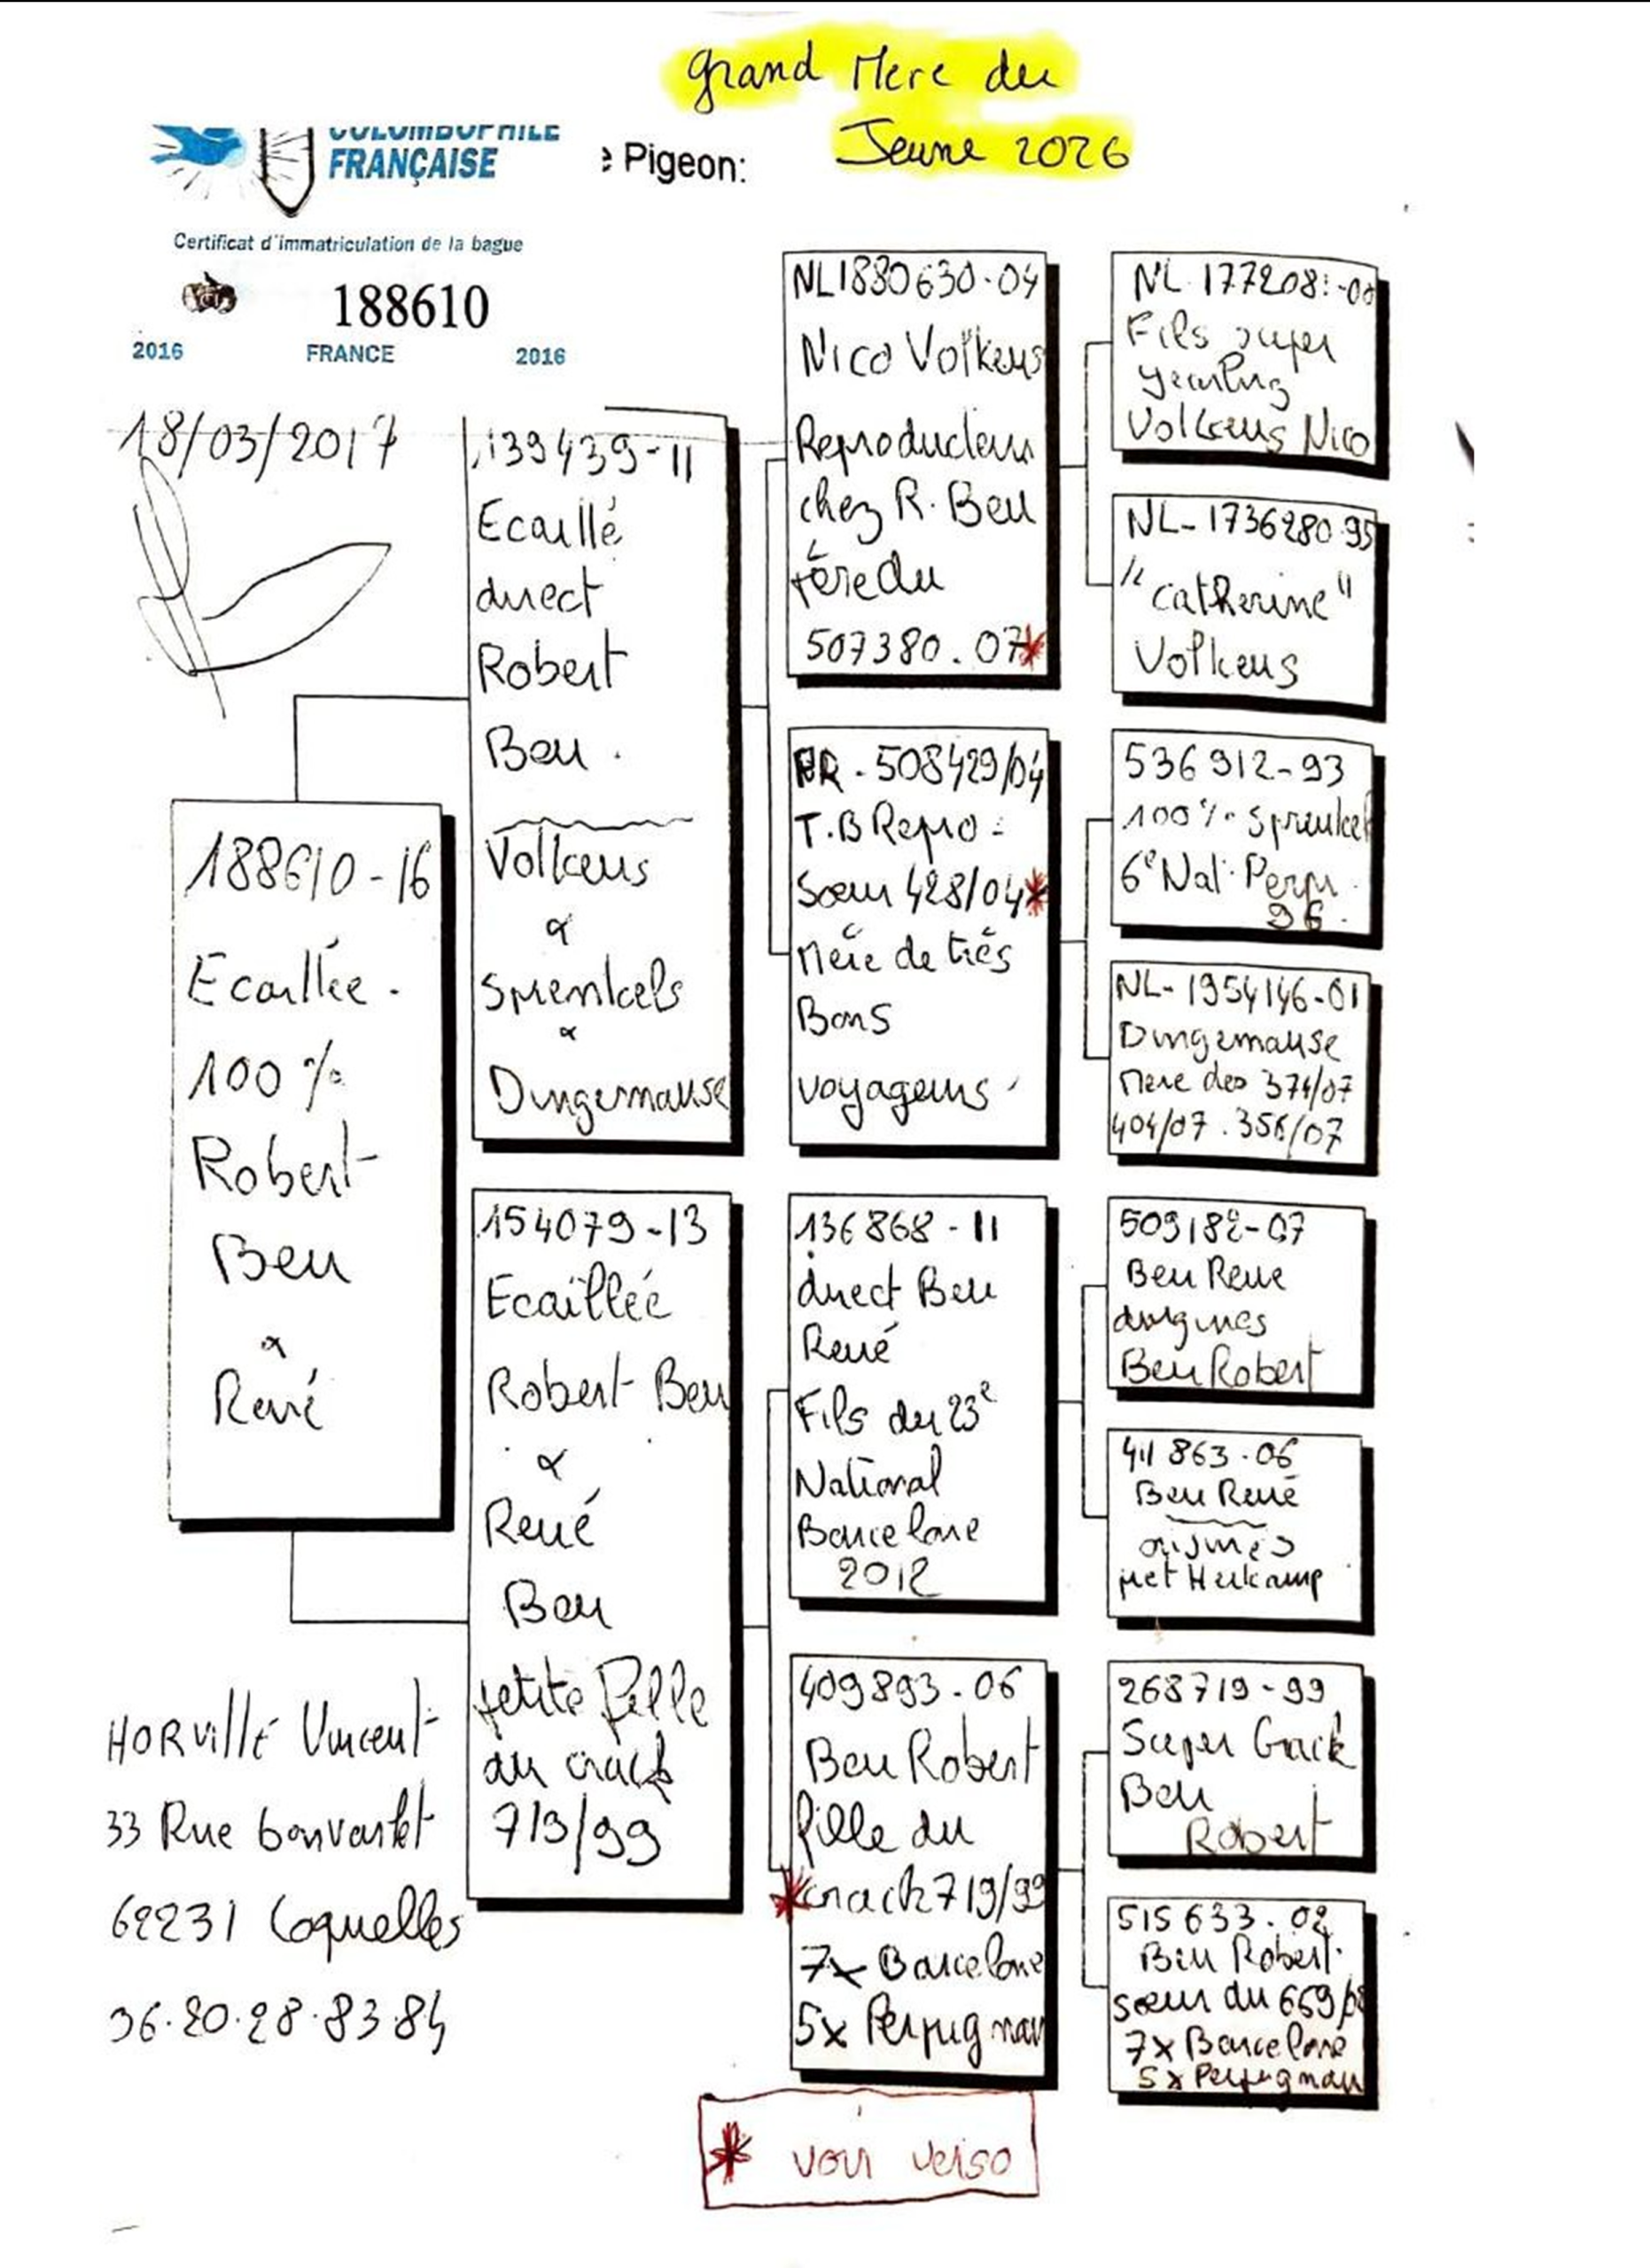 grand Mere du
Jeune 2026
COLOMBOPHILE
FRANÇAISE
Pigeon:
Certificat d'immatriculation de la bague
188610
2016 FRANCE 2016
18/03/2017
188610-16
Ecaillée.
100 %
Robert
Beu
&
René
HORVILLE Vincent
33 Rue
62231 Coquelles
06.20.28.83.84
139439-11
Ecaillé
direct
Robert
Beu.
Volkeus
&
Sprenkels
&
Dingemanse
154079-13
Ecaillée
Robert Beu
&
René
Beu
petite fille
du crack
719/99
NL1880630-04
Nico Volkeus
Reproducteur
chez R. Beu
Père du
507380.07*
FR-508429/04
T.B Repro:
Sœur 428/04*
Mère de très
Bons
voyageurs
136868-11
direct Beu
René
Fils du 23e
National
Barcelone
2012
409893.06
Beu Robert
fille du
*crack 719/99
7x Barcelone
5x Perpignan
Fils super
yearling
Volkeus Nico
NL-1736280.95
"Catherine"
Volkeus
536912-93
100% Sprenkel
6e Nat. Perpi.
96.
NL-1954146-01
Dingemanse
Mere des 374/07
404/07.356/07
509182-07
Beu Rene
origines
Beu Robert
411863.06
Beu René
origines
piet Heikamp
268719-99
Super Crack
Beu
Robert
515633.02
Beu Robert.
sœur du 669/
7x Barcelone
5x Perpignan
* voir verso